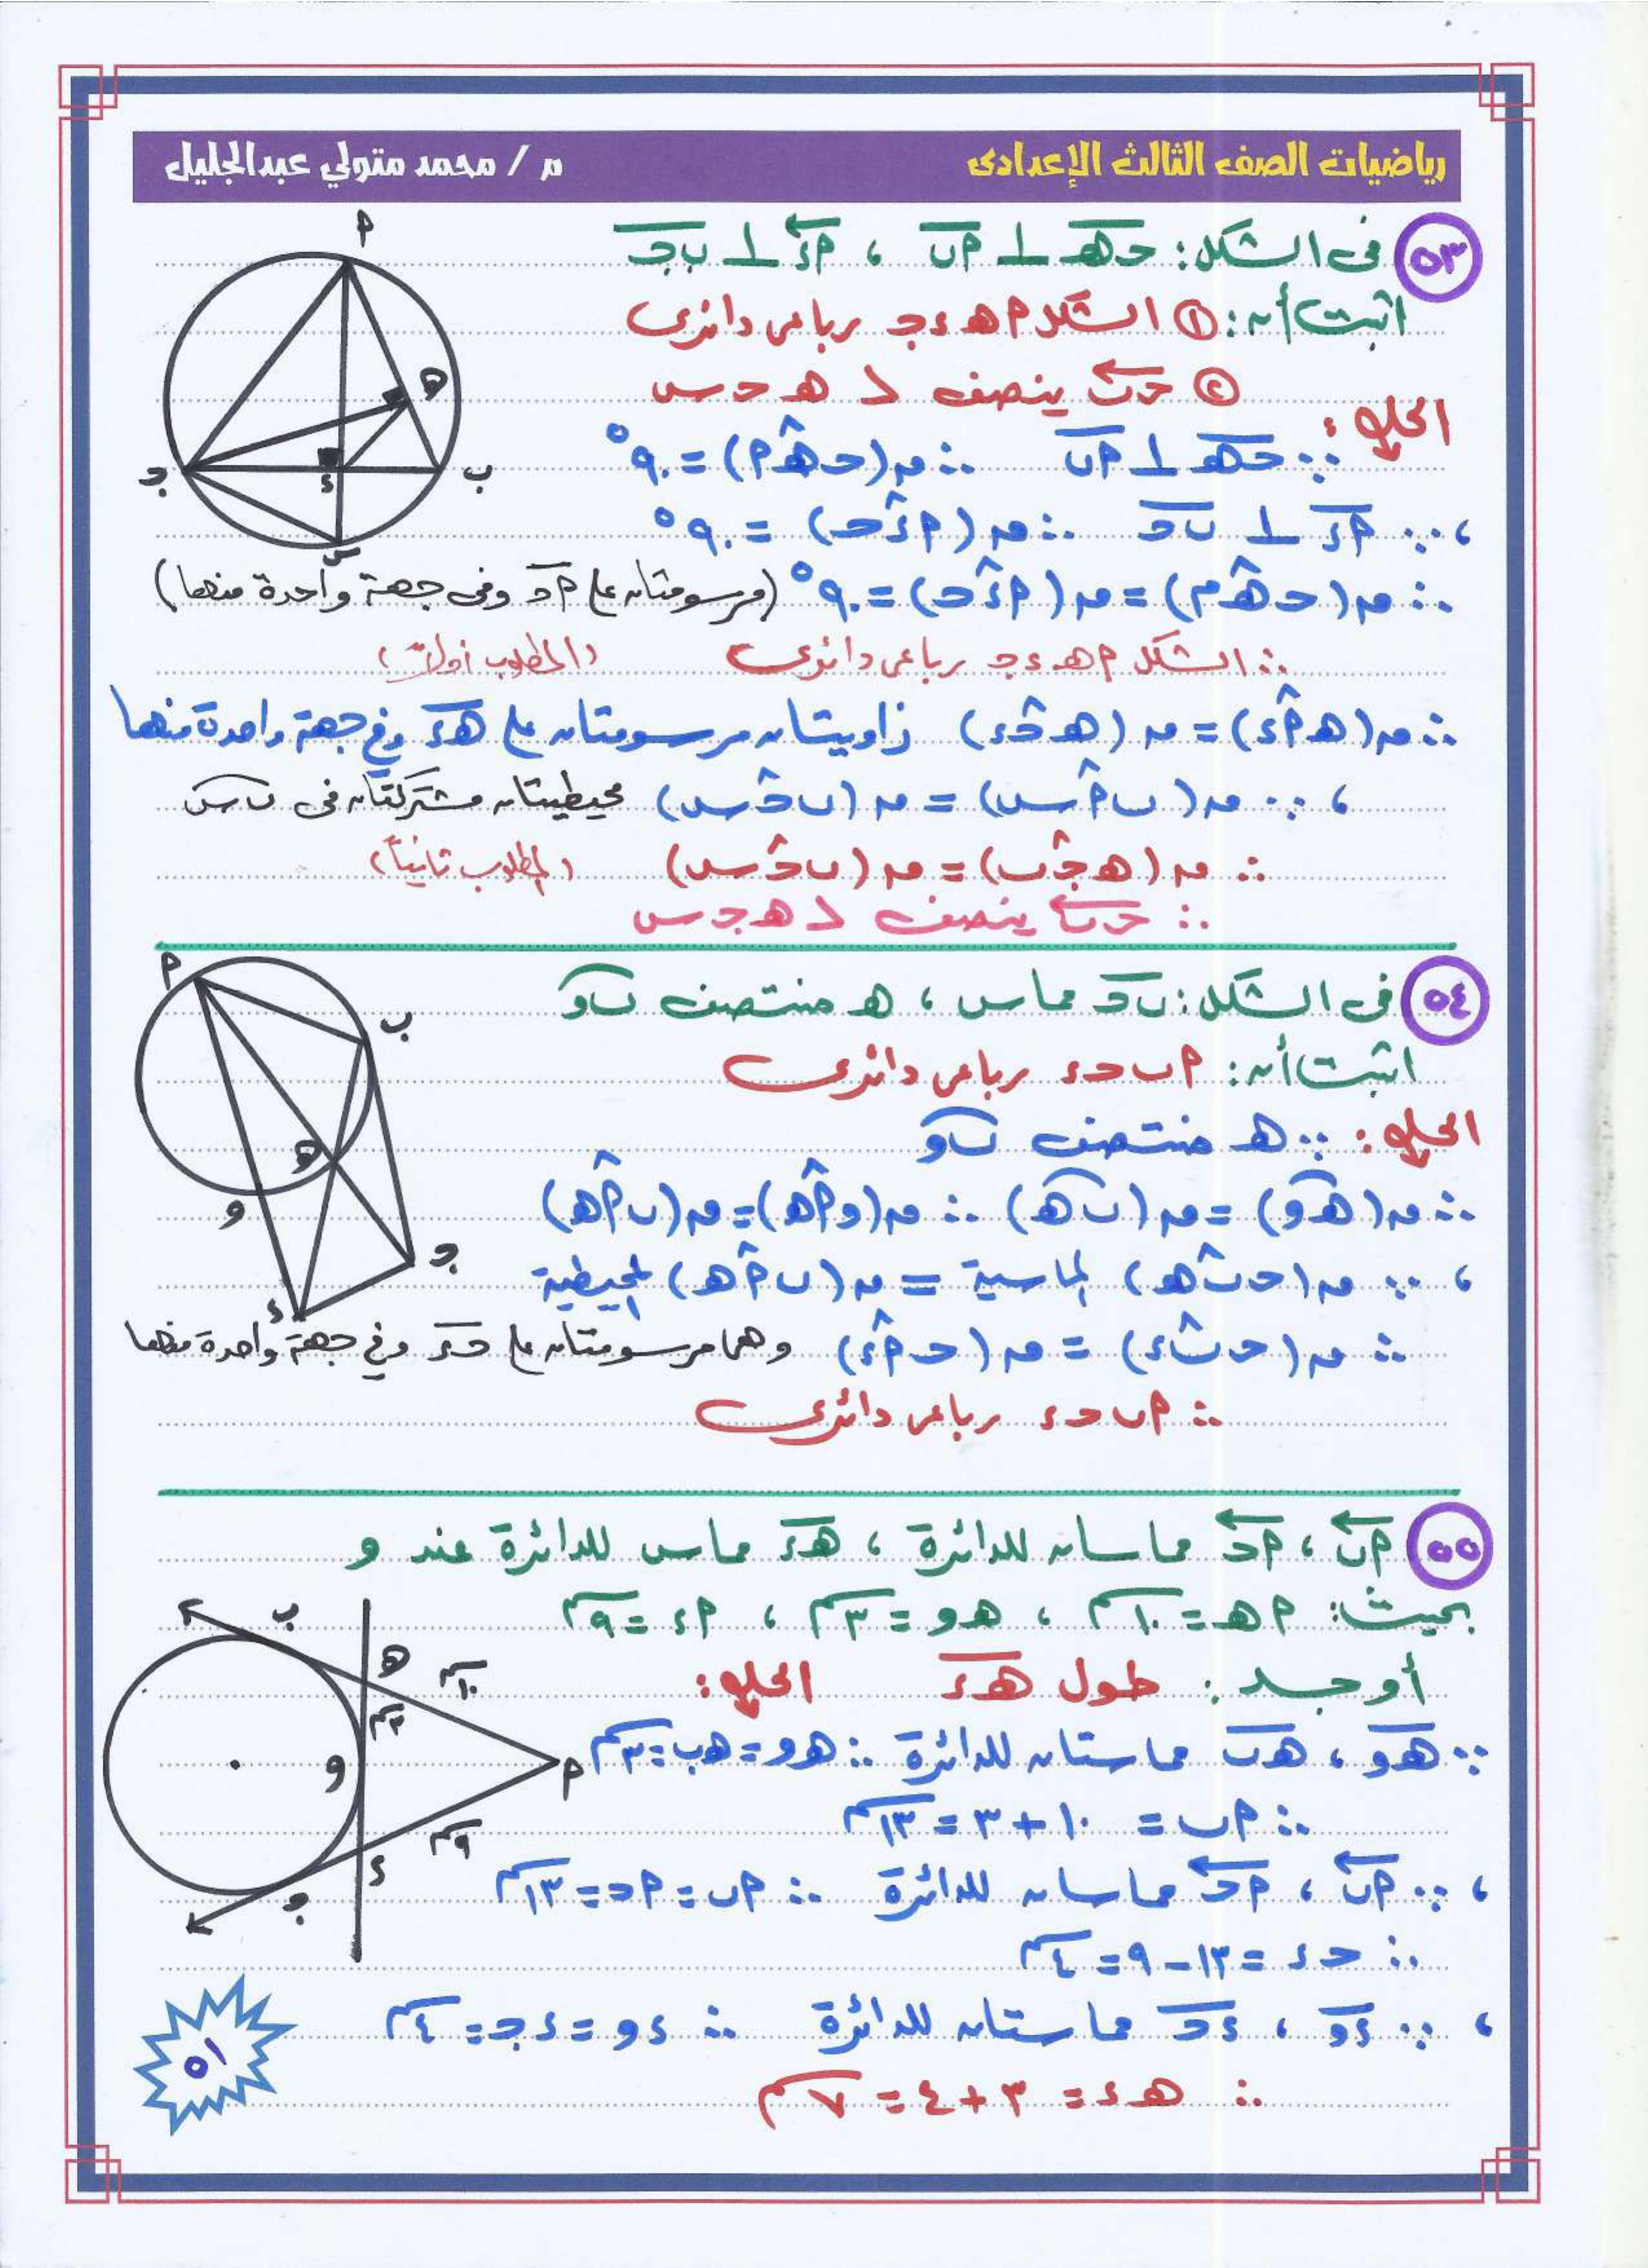 رياضيات الصف الثالث الإعدادى م / محمد متولي عبدالجليل
٥٣ فى الشكل: حـهـ ⊥ أب ، أء ⊥ بجـ
اثبت أن: ① الشكل أ هـ ء جـ رباعى دائرى
② حـب ينصف ∠ هـ حـ س
الحل:
∵ حـهـ ⊥ أب ∴ ق(حـ هـ أ) = ٩٠°
، ∵ أء ⊥ ب حـ ∴ ق(أ ء حـ) = ٩٠°
∴ ق(حـ هـ أ) = ق(أ ء حـ) = ٩٠° (مرسومتان على أحـ وفى جهة واحدة منها)
∴ الشكل أ هـ ء جـ رباعى دائرى (المطلوب أولاً)
∴ ق(هـ أ ء) = ق(هـ حـ ء) زاويتان مرسومتان على هـء وفى جهة واحدة منها
، ∵ ق(ب أ س) = ق(ب حـ س) محيطيتان مشتركتان فى ب س
∴ ق(هـ جـ ب) = ق(ب حـ س) (المطلوب ثانياً)
∴ حـب ينصف ∠ هـ جـ س
أ
هـ
ب
ء
جـ
س
٥٤ فى الشكل: ب حـ مماس ، هـ منتصف ب و
اثبت أن: أ ب حـ ء رباعى دائرى
الحل: ∵ هـ منتصف ب و
∴ ق(هـ و) = ق(ب هـ) ∴ ق(و أ هـ) = ق(ب أ هـ)
، ∵ ق(حـ ب هـ) المماسية = ق(ب أ هـ) المحيطية
∴ ق(حـ ب ء) = ق(حـ أ ء) وهما مرسومتان على حـء وفى جهة واحدة منها
∴ أ ب حـ ء رباعى دائرى
أ
ب
هـ
و
جـ
ء
٥٥ أب ، أحـ مماسان للدائرة ، هـء مماس للدائرة عند و
بحيث: أهـ = ١٠سم ، هـ و = ٣سم ، أء = ٩سم
أوجد: طول هـء الحل:
∵ هـو ، هـب مماستان للدائرة ∴ هـو = هـب = ٣سم
∴ أب = ١٠ + ٣ = ١٣سم
، ∵ أب ، أحـ مماسان للدائرة ∴ أب = أحـ = ١٣سم
∴ حـ ء = ١٣ - ٩ = ٤سم
، ∵ ءو ، ءحـ مماستان للدائرة ∴ ءو = ءجـ = ٤سم
∴ هـ ء = ٣ + ٤ = ٧سم
ب
هـ
١٠سم
٣سم
و
أ
٩سم
ء
جـ
٥١